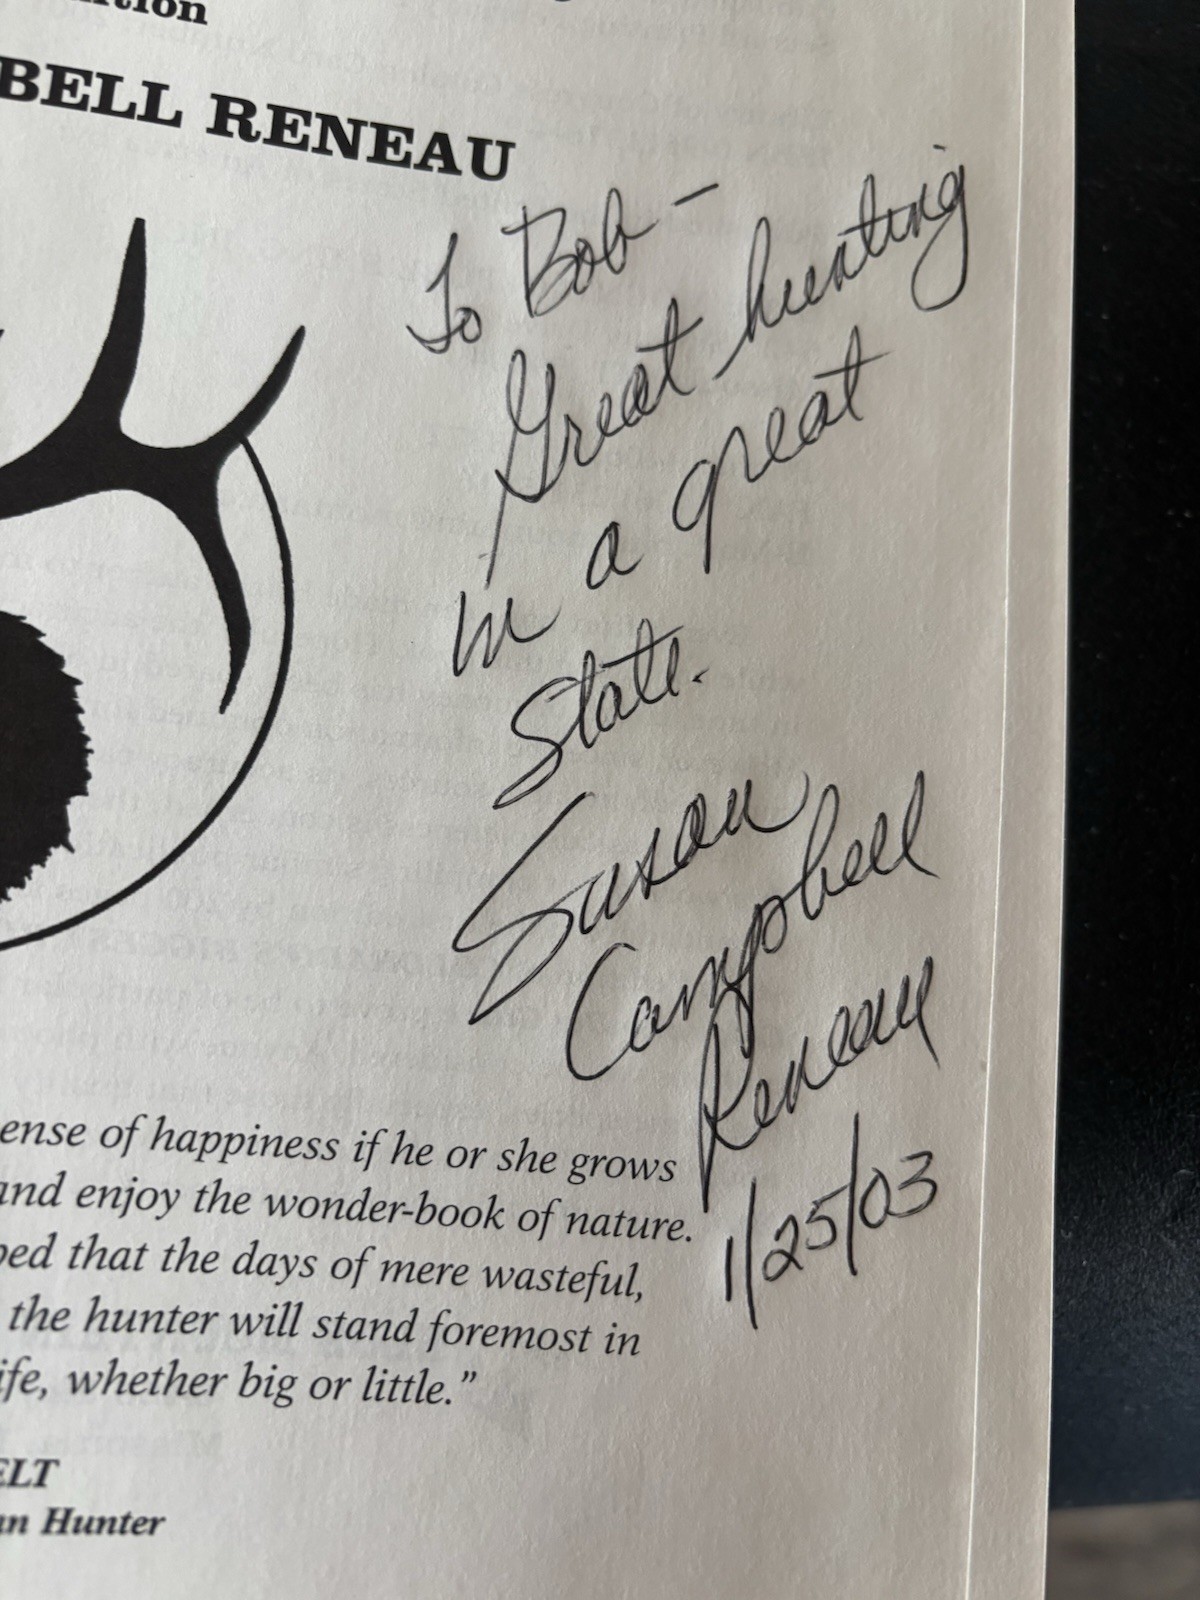 BELL RENEAU
To Bob –
Great hunting
in a great
State.
Susan
Campbell
Reneau
1/25/03
ense of happiness if he or she grows
and enjoy the wonder-book of nature.
ped that the days of mere wasteful,
the hunter will stand foremost in
ife, whether big or little.”
ELT
an Hunter